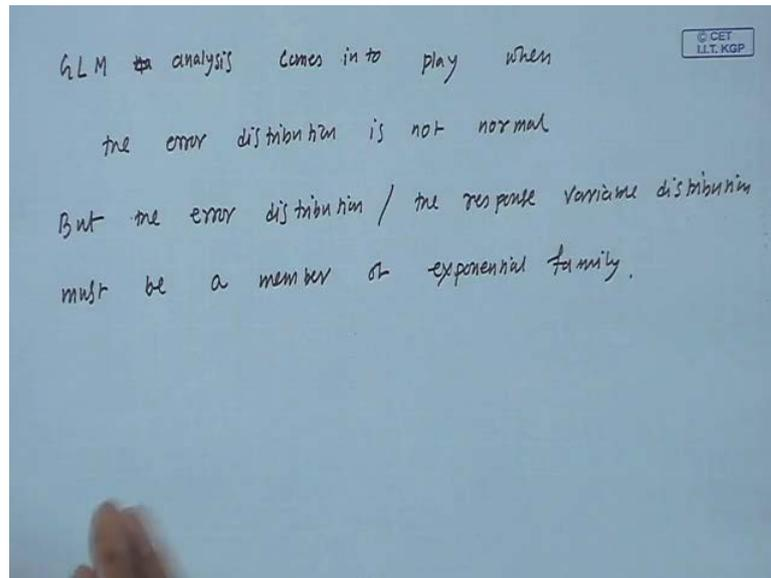 GLM analysis comes in to play when
© CET
I.I.T. KGP
the error distribution is not normal
But the error distribution / the response variable distribution
must be a member of exponential family.